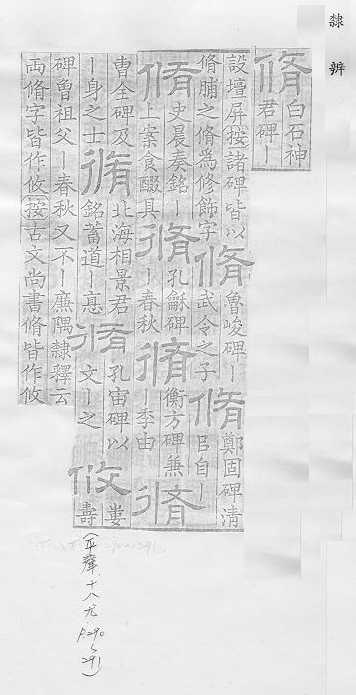 隸辨
脩 白石神君碑丨
設壇屏按諸碑皆以脩脯之脩為修飾字 脩 魯峻碑丨武令之子 脩 鄭固碑清㠯自丨
脩 史晨奏銘丨上案食醊具 脩 孔龢碑丨春秋 脩 衡方碑兼丨季由 脩
曹全碑及丨身之士 脩 北海相景君銘蓄道丨悳 脩 孔宙碑以文丨之 攸 婁壽
碑曾祖父丨春秋又不丨廉隅隸釋云兩脩字皆作攸按古文尚書脩皆作攸
(平聲.十八尤 P.290~291)